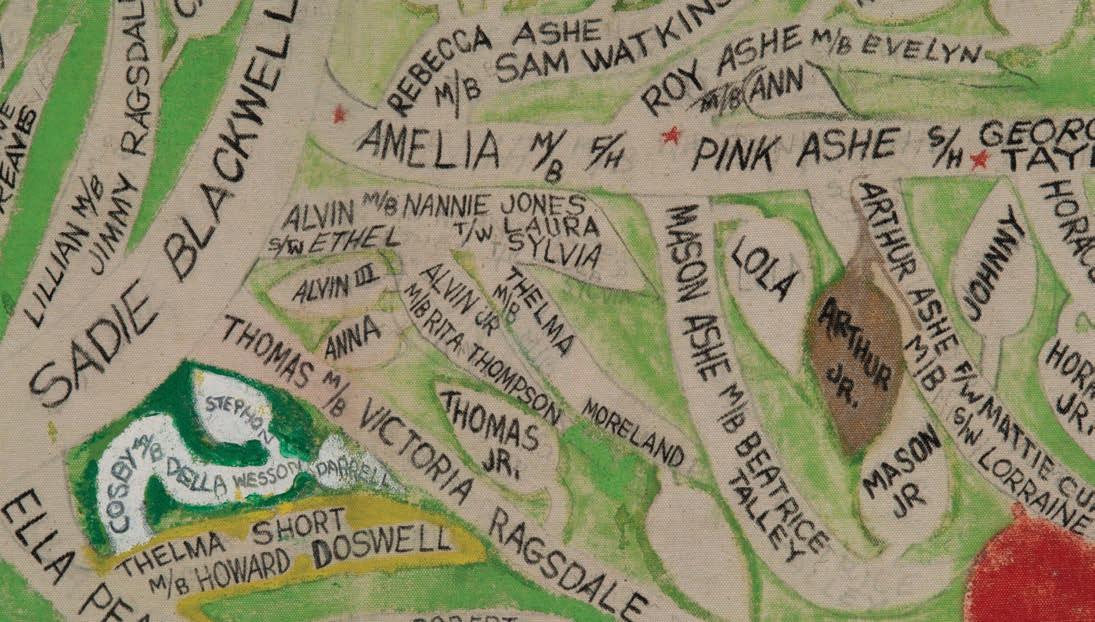 REBECCA ASHE
M/B SAM WATKINS
ROY ASHE M/B EVELYN
M/B ANN
AMELIA M/B F/H
PINK ASHE S/H
LILLIAN M/B
JIMMY RAGSDAL
SADIE BLACKWELL
ALVIN M/B NANNIE JONES
S/W ETHEL T/W LAURA
SYLVIA
ALVIN III
ANNA
ALVIN JR
M/B RITA THOMPSON
THELMA
M/B
MORELAND
THOMAS M/B VICTORIA RAGSDALE
THOMAS
JR.
STEPHON
COSBY M/B DELLA WESSON
DARRELL
THELMA SHORT
M/B HOWARD DOSWELL
ELLA
MASON ASHE M/B BEATRICE
TALLEY
LOLA
ARTHUR
JR.
ARTHUR ASHE F/W MATTIE CU
M/B S/W LORRAINE
MASON
JR
JOHNNY
HORAC
HORA
JR.